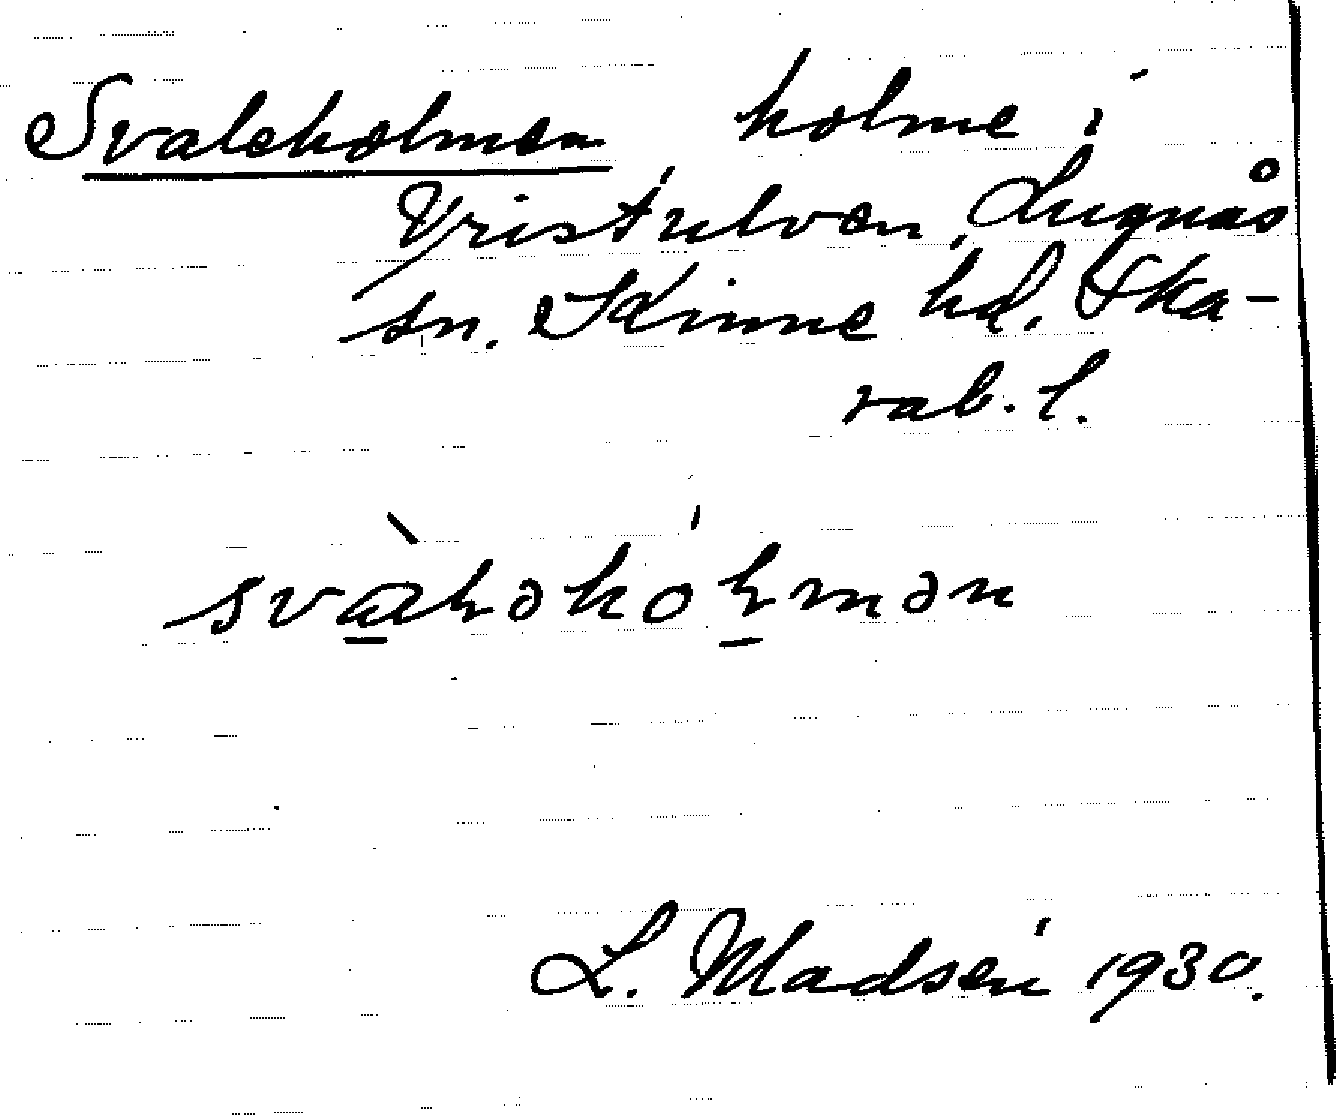 Svaleholmen, holme i
Vristulven, Lugnås
sn. Kinne hd. Ska-
rab. l.
L. Madsén 1930.